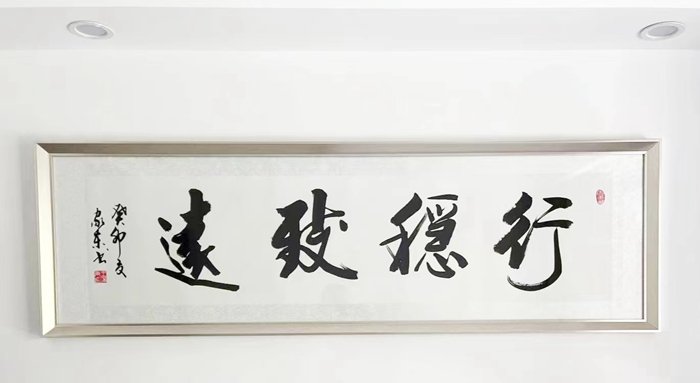 行穩致遠
癸卯夏
家東書